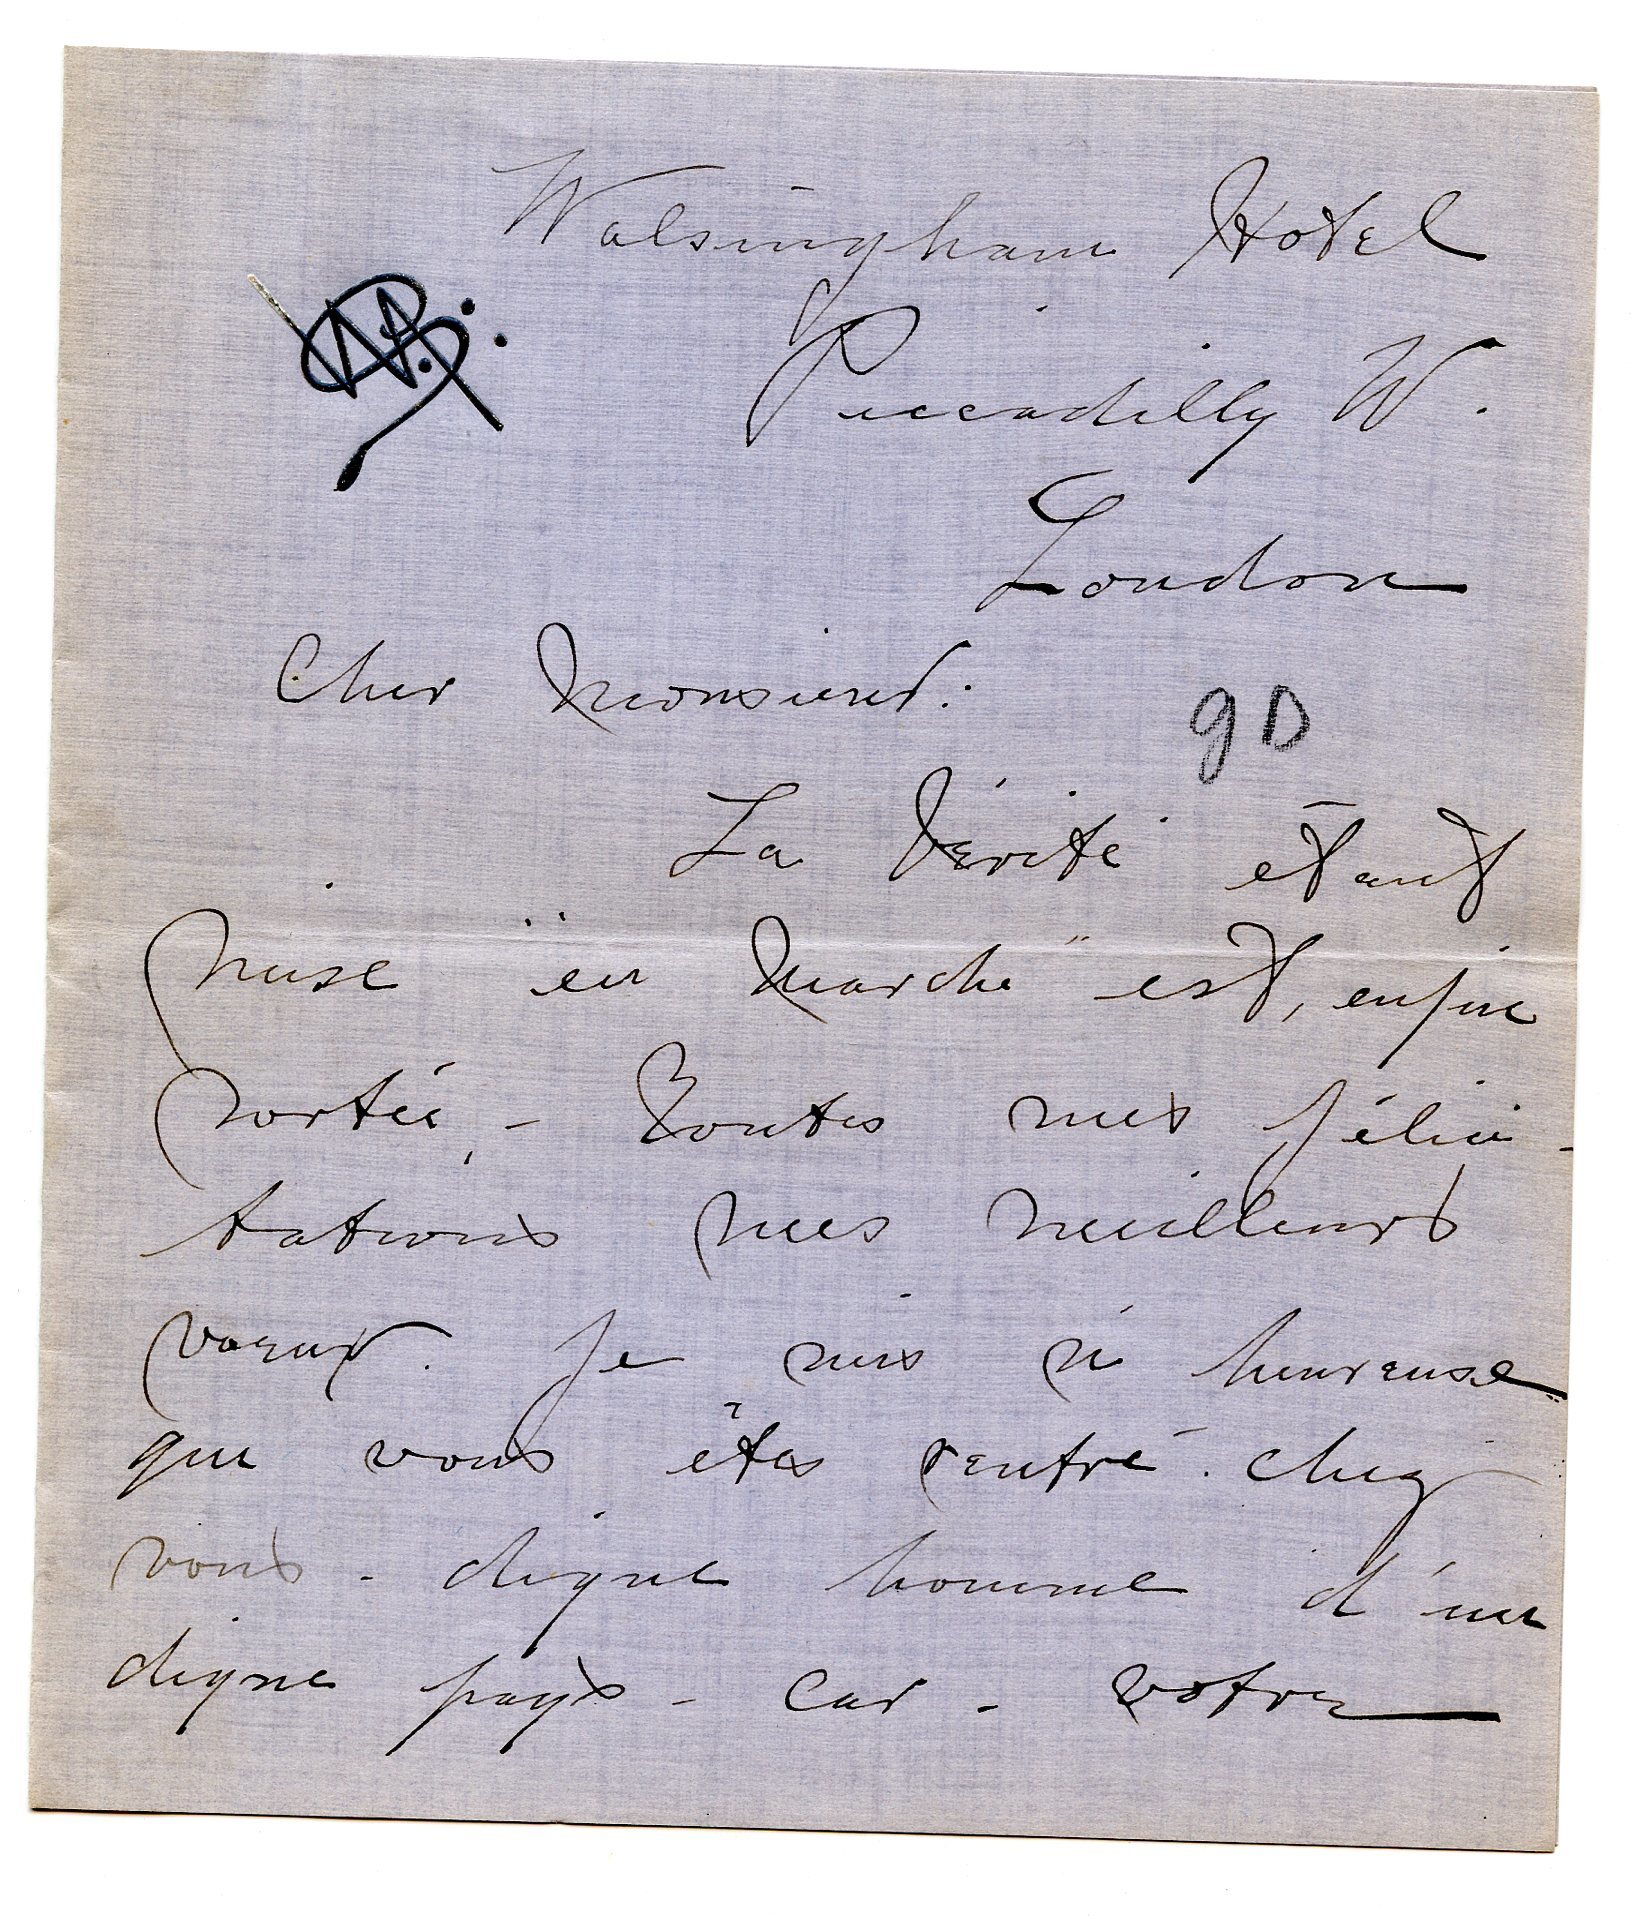 Walsingham Hotel
Piccadilly W.
London
Cher Monsieur:
gD
La Vérité étant
mise "en marche" est, enfin
sortie, - Toutes mes félici-
tations mes meilleurs
voeux. Je suis si heureuse
que vous êtes rentré chez
vous - digne homme d'un
digne pays - car - votre